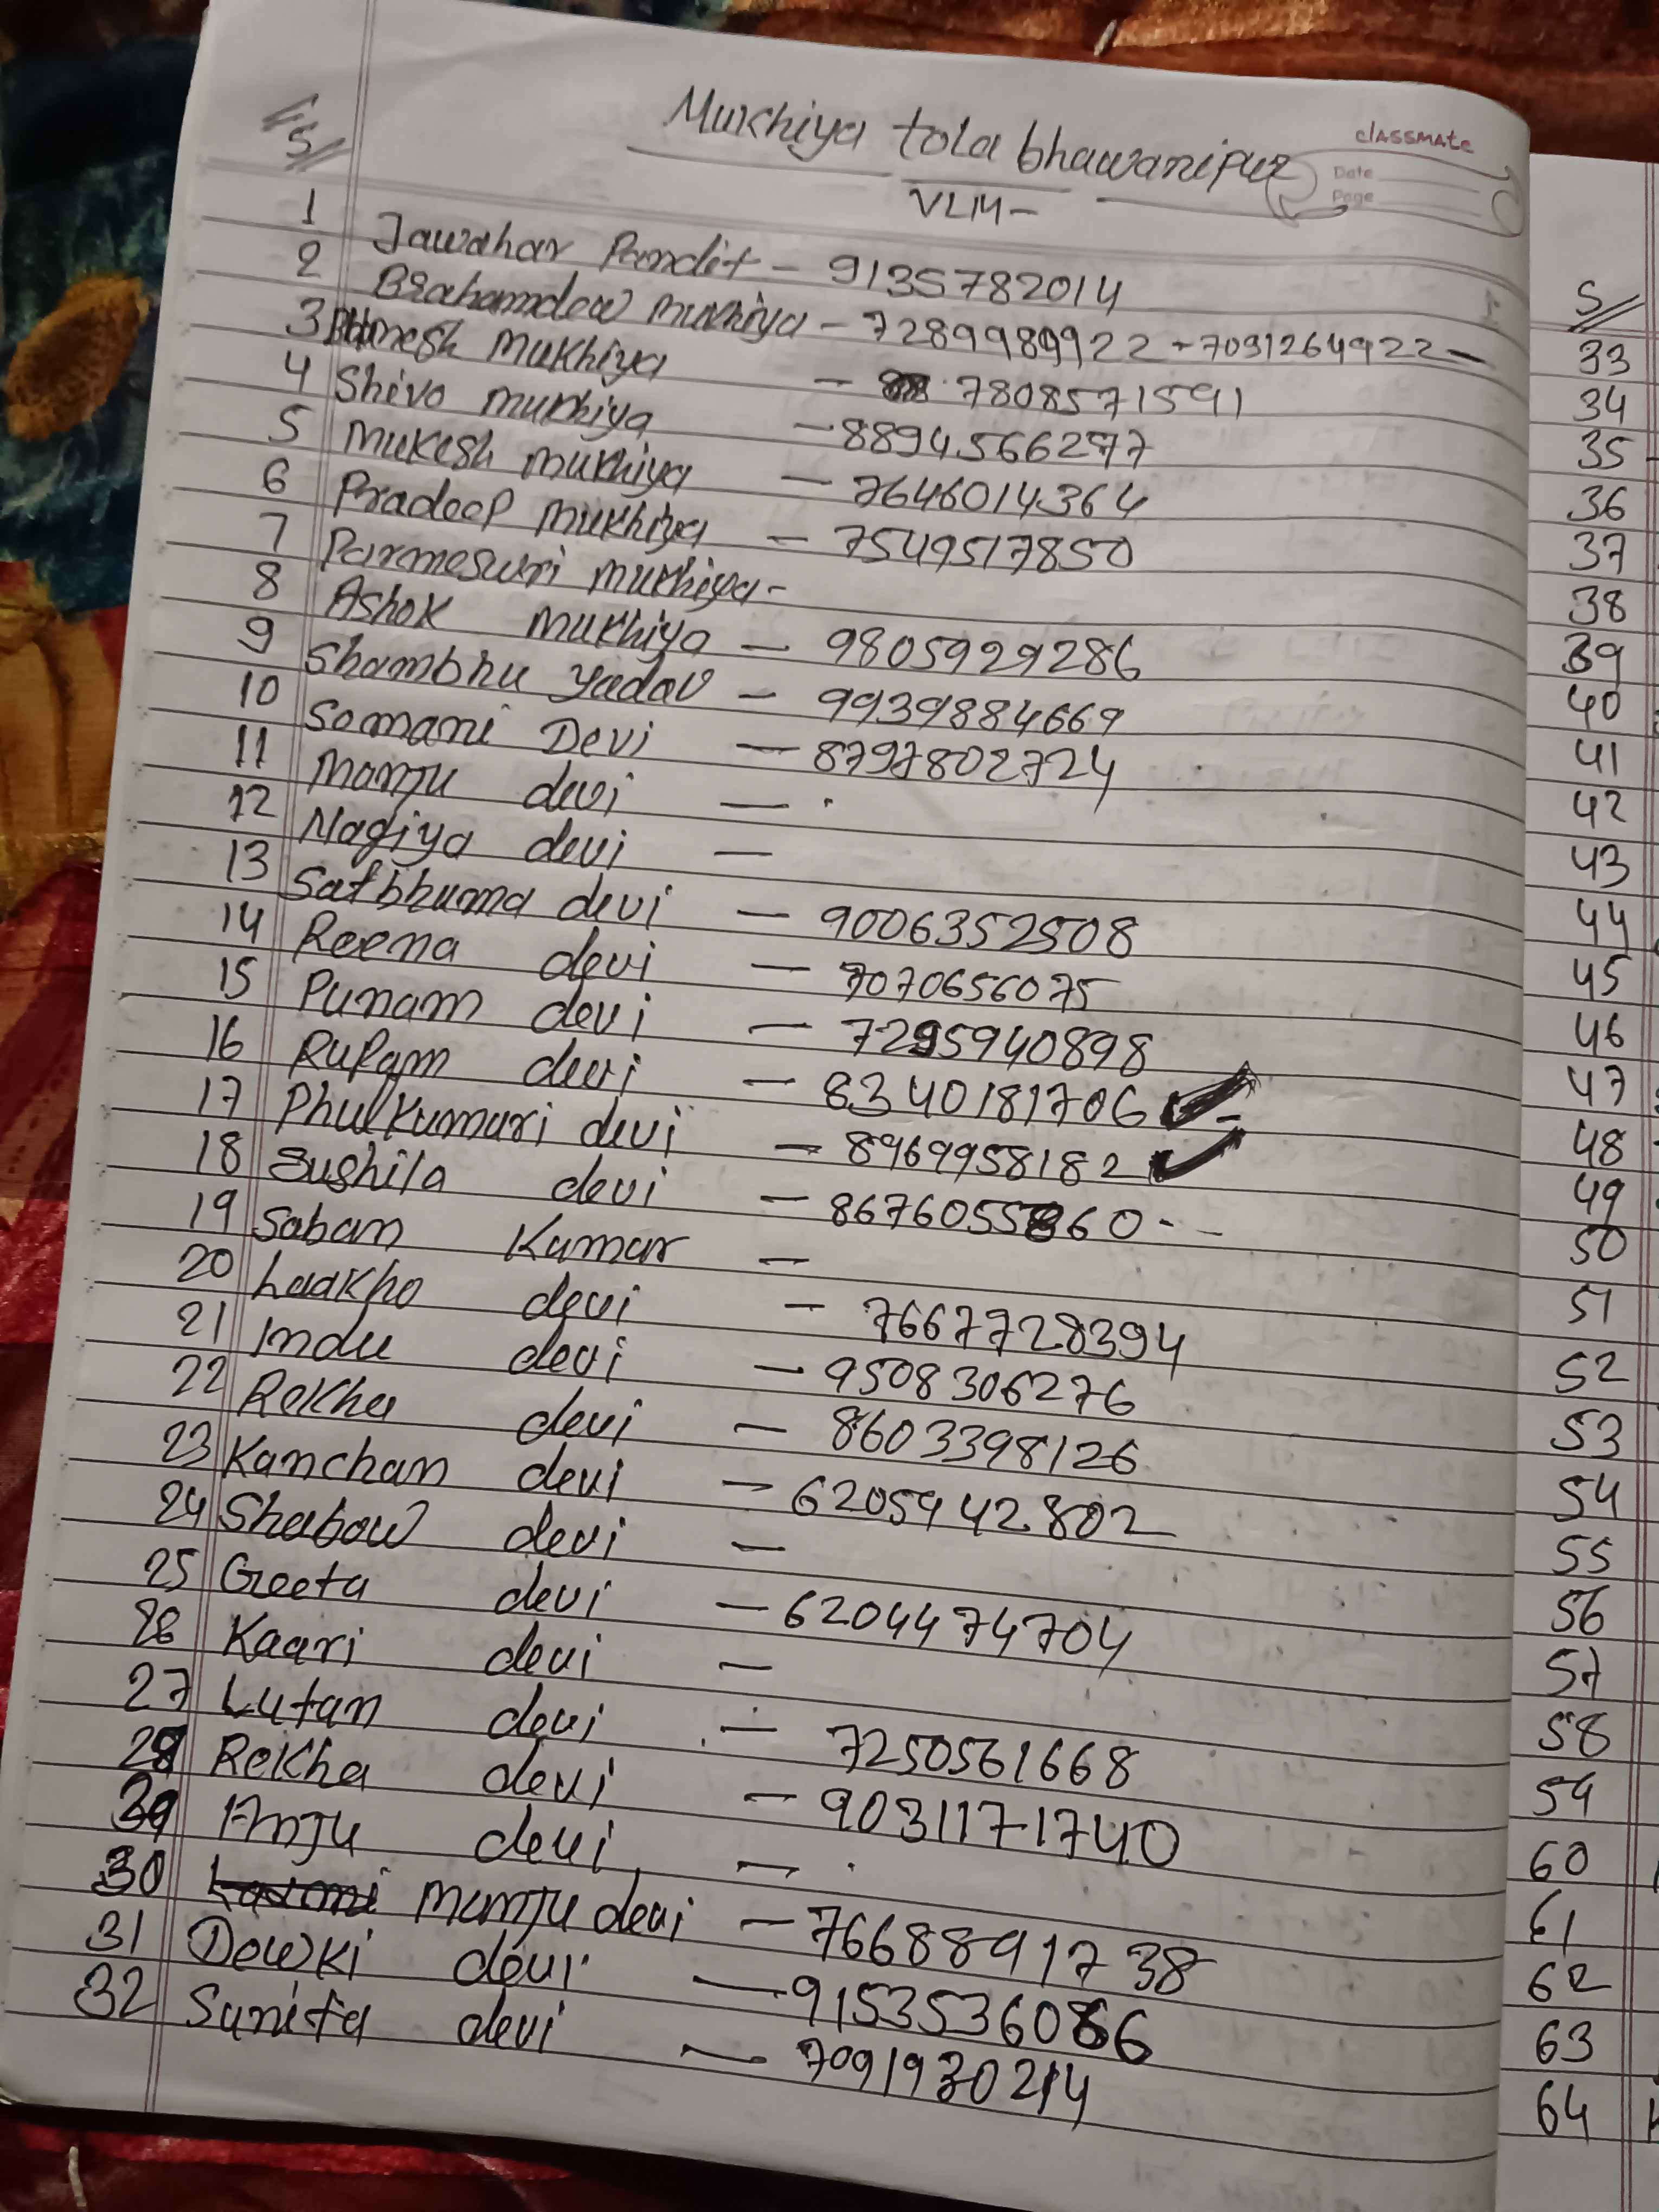 Mukhiya tola bhawanipur
classmate
Date
Page
S
VLM-
1 Jawahar Pandit - 9135782014
2 Brahamdew mukhiya - 7289989922 - 7031264922 -
3 mukhiya - 7808571591
4 Shivo mukhiya - 8894566277
5 Mukesh mukhiya - 7646014364
6 Pradeep mukhiya - 7549517850
7 Parmeswri mukhiya -
8 Ashok mukhiya - 9805929286
9 Shambhu yadav - 9939884669
10 Somani Devi - 8797802724
11 Manju devi - .
12 Nagiya devi -
13 Satbhuma devi - 9006352508
14 Reena devi - 7070656075
15 Punam devi - 7295940898
16 Rupam devi - 8340181706 ✓
17 Phulkumari devi - 8969958182 ✓
18 Sushila devi - 8676055860
19 Saban Kumar -
20 Laakho devi - 7667728394
21 Indu devi - 9508306276
22 Rekha devi - 8603398126
23 Kanchan devi - 6205942802
24 Shabow devi -
25 Geeta devi - 6204474704
26 Kaari devi -
27 Lutan devi - 7250561668
28 Rekha devi - 9031171740
29 Anju devi - .
30 Manju devi - 7668891738
31 Dewki devi - 9153536086
32 Sunita devi - 7091930214
S
33
34
35
36
37
38
39
40
41
42
43
44
45
46
47
48
49
50
51
52
53
54
55
56
57
58
59
60
61
62
63
64